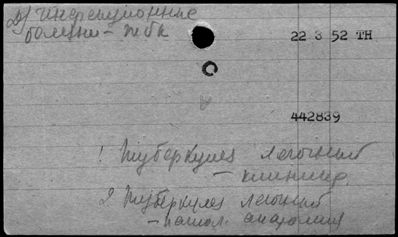 2) Инфекционные
болезни - твс
22 3 52 TH
442839
! Туберкулез легочный
— клиника.
2 Туберкулез легочный
— патол. анатомия